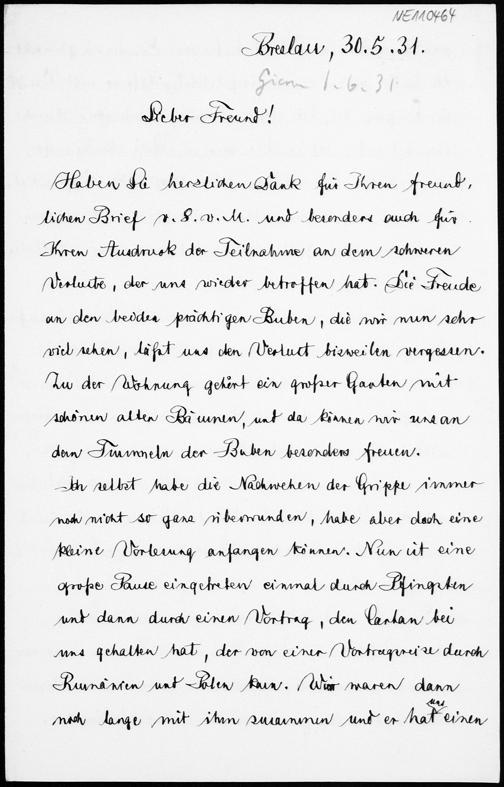 NE110464
Breslau, 30.5.31.
1.6.31
Lieber Freund!
Haben Sie herzlichen Dank für Ihren freund,
lichen Brief v. 8. v. M. und besonders auch für
Ihren Ausdruck der Teilnahme an dem schweren
Verluste, der uns wieder betroffen hat. Die Freude
an den beiden prächtigen Buben, die wir nun sehr
viel sehen, läßt uns den Verlust bisweilen vergessen.
Zu der Wohnung gehört ein großer Garten mit
schönen alten Bäumen, und da können wir uns an
dem Tummeln der Buben besonders freuen.
Ich selbst habe die Nachwehen der Grippe immer
noch nicht so ganz überwunden, habe aber doch eine
kleine Vorlesung anfangen können. Nun ist eine
große Pause eingetreten einmal durch Pfingsten
und dann durch einen Vortrag, den Cartan bei
uns gehalten hat, der von einer Vortragsreise durch
Rumänien und Polen kam. Wir waren dann
noch lange mit ihm zusammen und er hat uns einen